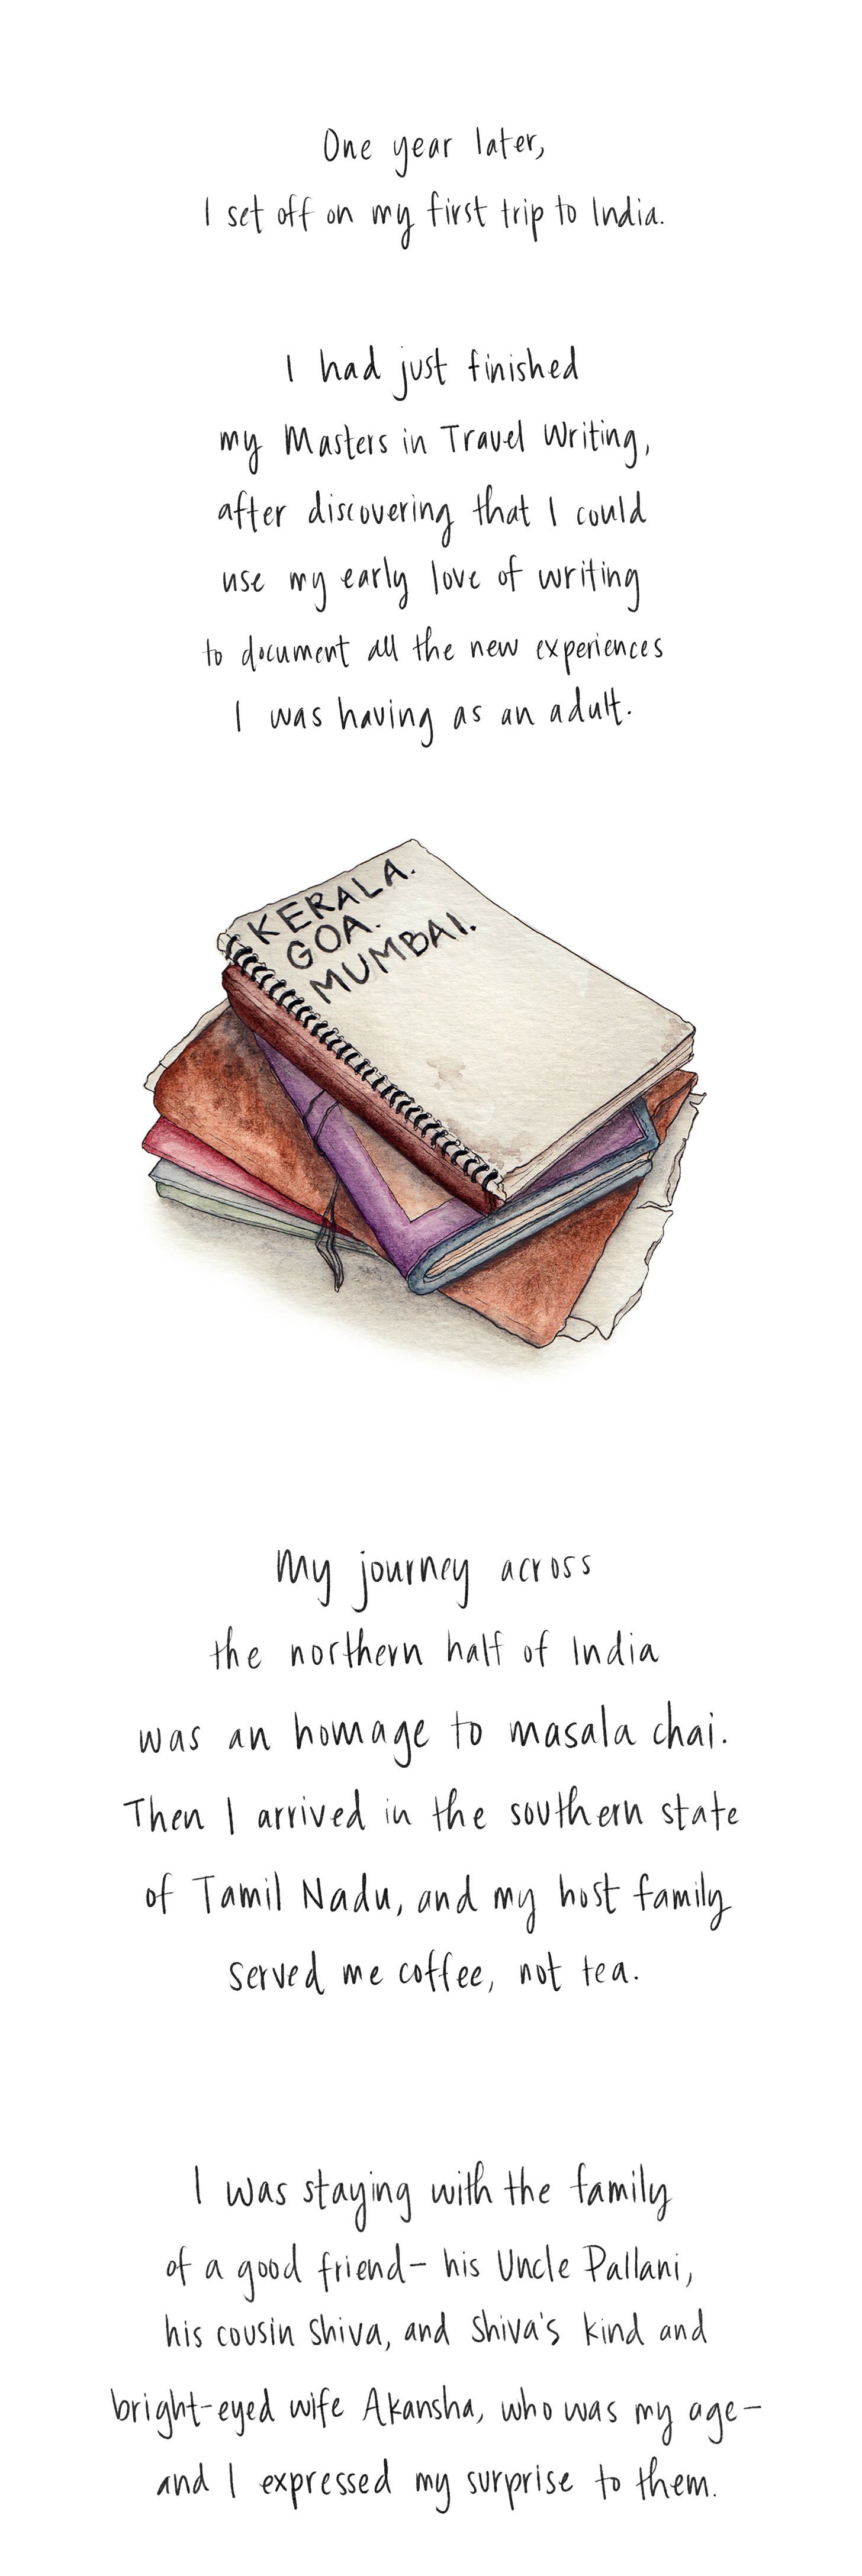 One year later,
I set off on my first trip to India.
I had just finished
my Masters in Travel Writing,
after discovering that I could
use my early love of writing
to document all the new experiences
I was having as an adult.
KERALA.
GOA.
MUMBAI.
My journey across
the northern half of India
was an homage to masala chai.
Then I arrived in the southern state
of Tamil Nadu, and my host family
served me coffee, not tea.
I was staying with the family
of a good friend— his Uncle Pallani,
his cousin Shiva, and Shiva's kind and
bright-eyed wife Akansha, who was my age—
and I expressed my surprise to them.